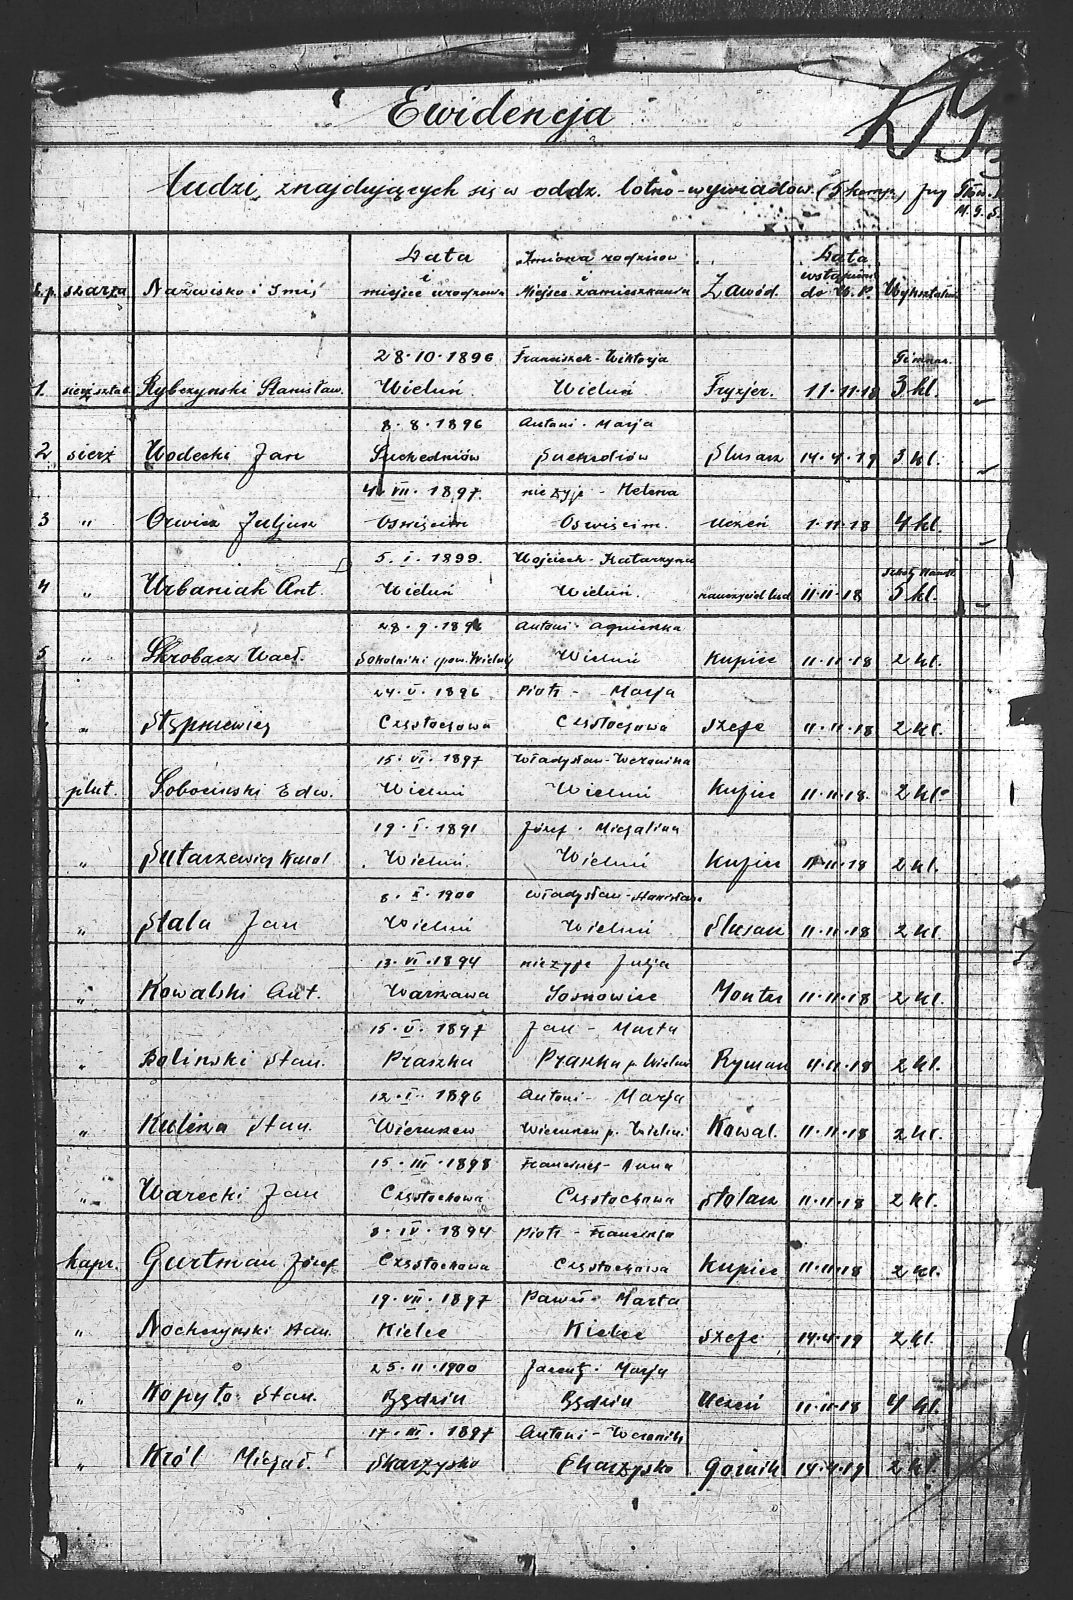 Ewidencja
ludzi znajdujących się w oddz. lotno-wywiadow. (5 komp.) przy Głów.
M. G. S.
L.p. szarża Nazwisko i Imię Data i miejsce urodzenia Imiona rodziców i Miejsce zamieszkania Zawód. Data wstąpien. do W.P. Wykształcen.
28.10.1896 Franciszek - Wiktorja Gimnaz.
1. sierż. sztab. Rybczynski Stanisław. Wieluń Wieluń Fryzjer. 11.11.18 3 kl.
8.8.1896 Antoni - Marja
2 sierż Wodecki Jan Suchedniów Suchedniów Slusarz 14.4.19 3 kl.
4.VII.1897. nie żyje - Helena
3 " Orwicz Juljusz Oswięcim Oswięcim. Uczeń 1.11.18 4 kl.
5.I.1899. Wojciech - Katarzyna
4 " Urbaniak Ant. Wieluń Wieluń. nauczyciel lud. 11.11.18 5 kl.
28.9.1896 Antoni - Agnieszka
5 " Skrobacz Wacł. Sokolniki (pow. Wieluń) Wieluń Kupiec 11.11.18 2 kl.
24.V.1896 Piotr - Marja
" Stępniewicz Częstochowa Częstochowa Szofe 11.11.18 2 kl.
15.VI.1897 Władysław - Weronika
plut. Sobocinski Edw. Wieluń Wieluń Kupiec 11.11.18. 2 kl.
19.I.1891 Józef - Michalina
" Sutarzewicz Karol Wieluń Wieluń Kupiec 11.11.18 2 kl.
8.X.1900 Władysław - Stanisława
" Stala Jan Wieluń Wieluń Slusarz 11.11.18 2 kl.
13.VI.1894 nie żyje Julja
" Kowalski Ant. Warszawa Sosnowiec Monter 11.11.18 2 kl.
15.V.1897 Jan - Marta
" Bolinski Stan. Praszka Praszka p. Wieluń Rymarz 11.11.18 2 kl.
12.I.1896 Antoni - Marja
" Kulisza Stan. Wieruszew Wieruszew p. Wieluń Kowal. 11.11.18 2 kl.
15.III.1898 Franciszek - Anna
" Warecki Jan Częstochowa Częstochowa Stolarz 11.11.18 2 kl.
8.IV.1894 Piotr - Francisza
kapr. Gurtman Józef Częstochowa Częstochowa Kupiec 11.11.18 2 kl.
19.VII.1897 Paweł - Marta
" Nochczynski Adam. Kielce Kielce Szofe 14.4.19 2 kl.
25.II.1900 Jacenty - Marja
" Kopyto Stan. Będzin Będzin Uczeń 11.11.18 4 kl.
17.III.1897 Antoni - Weronika
" Król Michał Skarzysko Skarzysko Gornik 14.4.19 2 kl.